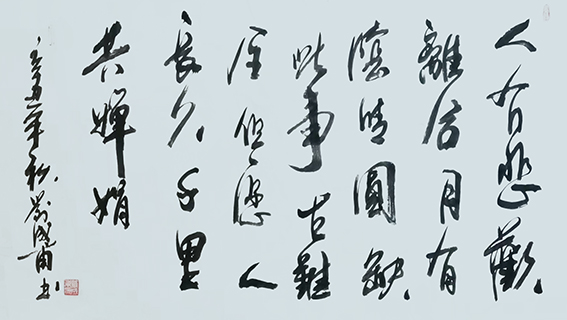 人有悲歡
離合月有
陰晴圓缺
此事古難
全但愿人
長久千里
共嬋娟
辛丑年秋劉成甫书